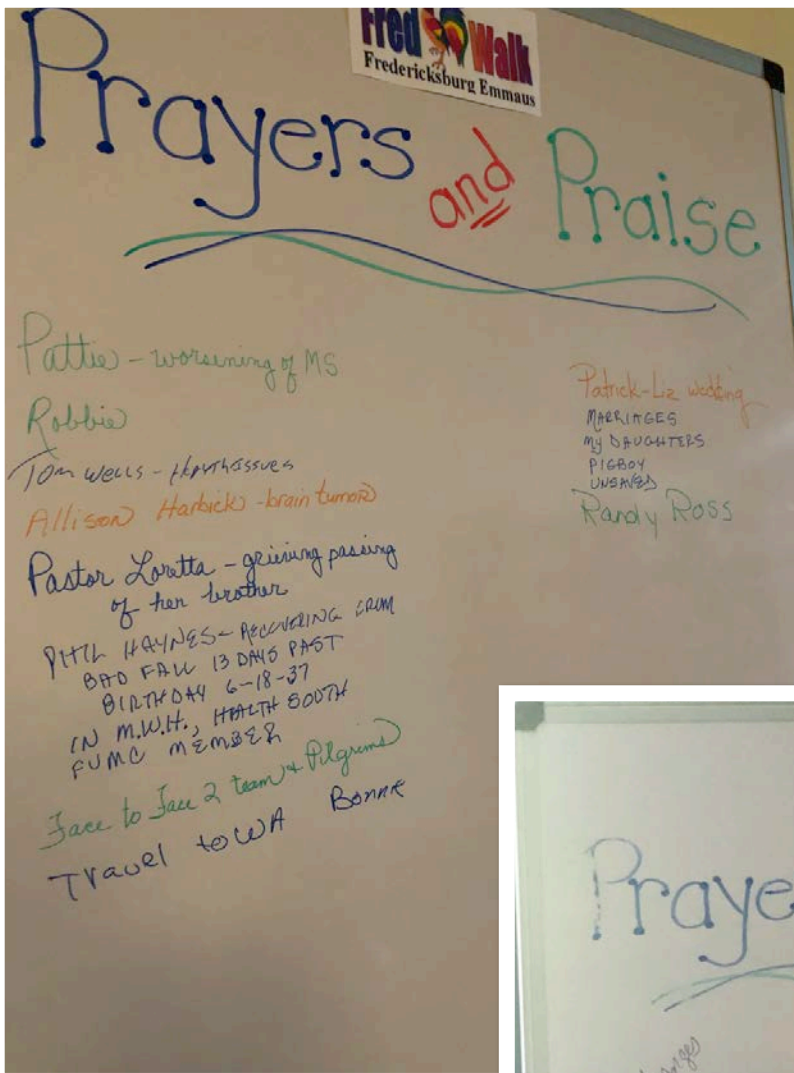 Fred Walk
Fredericksburg Emmaus
Prayers and Praise
Pattie - worsening of MS
Robbie
Tom Wells - Health issues
Allison Harbick - brain tumor
Pastor Loretta - grieving passing
of her brother
PHIL HAYNES - RECOVERING FROM
BAD FALL 13 DAYS PAST
BIRTHDAY 6-18-37
IN M.W.H., HEALTH SOUTH
FUMC MEMBER
Face to Face 2 team & Pilgrims
Travel to WA Bonnie
Patrick-Liz wedding
MARRIAGES
MY DAUGHTERS
PIGBOY
UNSAVED
Randy Ross
Praye